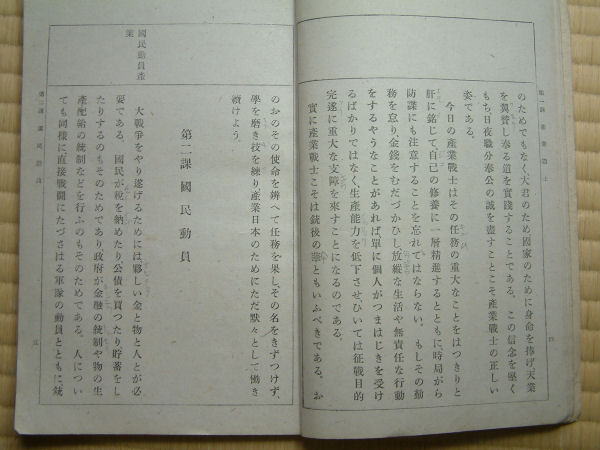 第一課 産業戰士
四
のためでもなく大君のため國家のために身命を捧げ天業
を翼賛し奉る道を實踐することである。この信念を堅く
もち、日夜職分奉公の誠を盡すことこそ產業戰士の正しい
姿である。
今日の產業戰士はその任務の重大なことをはつきりと
肝に銘じて、自己の修養に一層精進するとともに、時局がら
防諜にも注意することを忘れてはならない。もしその勤
務を怠り、金錢をむだづかひし、放縱な生活や無責任な行動
をするやうなことがあれば、單に個人がつまはじきを受け
るばかりではなく、生產能力を低下させ、ひいては征戰目的
完遂に重大な支障を來すことになるのである。
實に產業戰士こそは銃後の華ともいふべきである。お
のおのその使命を辨へて任務を果し、その名をきずつけず、
學を磨き技を練り、產業日本のためにただ默々として働き
續けよう。
第二課 國民動員
國民動員產
業
大戰爭をやり遂げるためには夥しい金と物と人とが必
要である。國民が稅を納めたり、公債を買つたり、貯蓄をし
たりするのもそのためであり、政府が金融の統制や物の生
產配給の統制などを行ふのもそのためである。人につい
ても同樣に、直接戰鬪にたづさはる軍隊の動員とともに、銃
第二課 國民動員
五